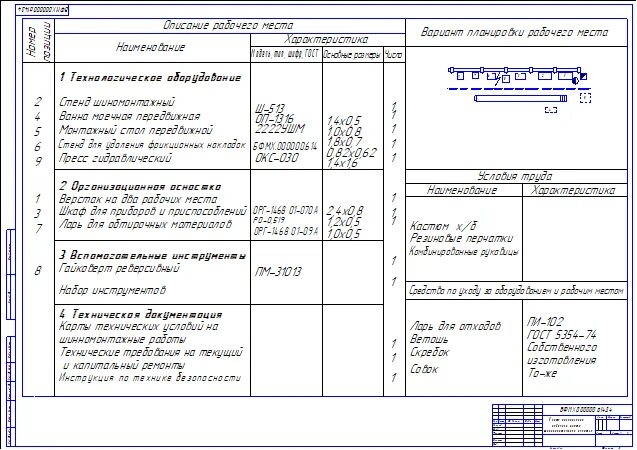 Описание рабочего места
Номер позиции
Наименование
Характеристика
Модель, тип, шифр, ГОСТ
Основные размеры
Число
Вариант планировки рабочего места
1 Технологическое оборудование
2 Стенд шиномонтажный Ш-513 1
4 Ванна моечная передвижная ОП-1316 1,4х0,5 1
5 Монтажный стол передвижной 2222УШМ 1,0х0,8 1
6 Стенд для удаления фрикционных накладок БФМХ.000000614 1,8х0,7 1
0,82х0,62
9 Пресс гидравлический ОКС-030 1,4х1,6 1
2 Организационная оснастка
1 Верстак на два рабочих места 1
3 Шкаф для приборов и приспособлений ОРГ-1468 01-070А 2,4х0,8 1
РО-0,519 1,2х0,5
7 Ларь для обтирочных материалов ОРГ-1468 01-09А 1,0х0,5 1
3 Вспомогательные инструменты
8 Гайковерт реверсивный ПМ-31013 1
Набор инструментов 1
4 Техническая документация
Карты технических условий на
шинномонтажные работы 1
Технические требования на текущий
и капитальный ремонты 1
Инструкция по технике безопасности 1
Условия труда
Наименование
Характеристика
Костюм х/б
Резиновые перчатки
Комбинированные рукавицы
Средства по уходу за оборудованием и рабочим местом
Ларь для отходов ПИ-102
Ветошь ГОСТ 5354-74
Скредок Собственного
изготовления
Совок То-же